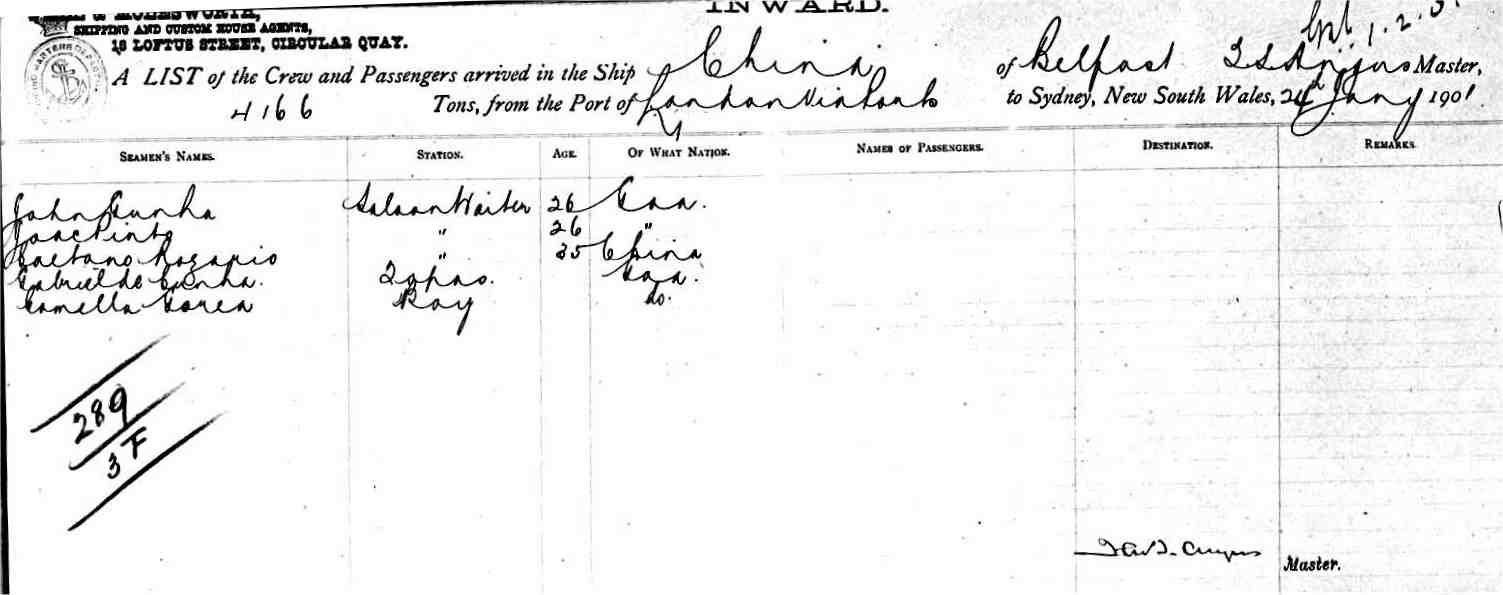 & MOLESWORTH,
INWARD.
SHIPPING AND CUSTOM HOUSE AGENTS,
18 LOFTUS STREET, CIRCULAR QUAY.
1.2.
A LIST of the Crew and Passengers arrived in the Ship China of Belfast Angus Master,
4166 Tons, from the Port of London via Ports to Sydney, New South Wales, 24 Jany 1901
SEAMEN'S NAMES. STATION. AGE. OF WHAT NATION. NAMES OF PASSENGERS. DESTINATION. REMARKS
John Cunha Saloon Waiter 26 Goa.
Pinto " 26 "
Caetano Rozario " 35 China
Gabriel de Cunha. Topas. Goa.
Camella Boy do.
289
3F
Angus Master.